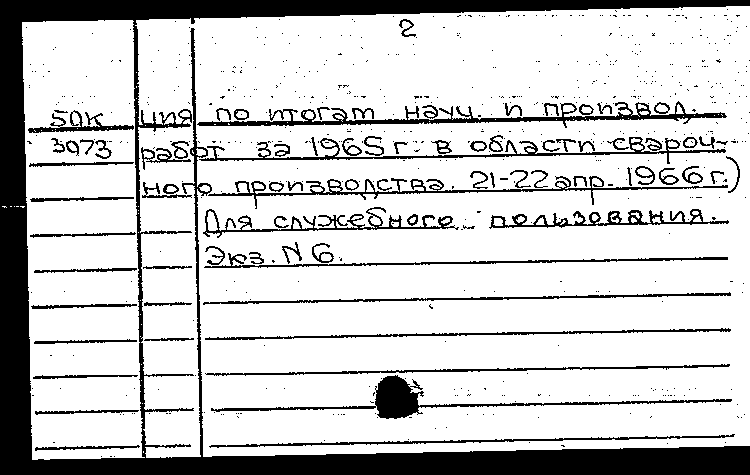 2
50к ция по итогам науч. и производ.
3073 работ за 1965 г. в области свароч-
ного производства. 21-22 апр. 1966 г.)
Для служебного пользования.
Экз. N 6.